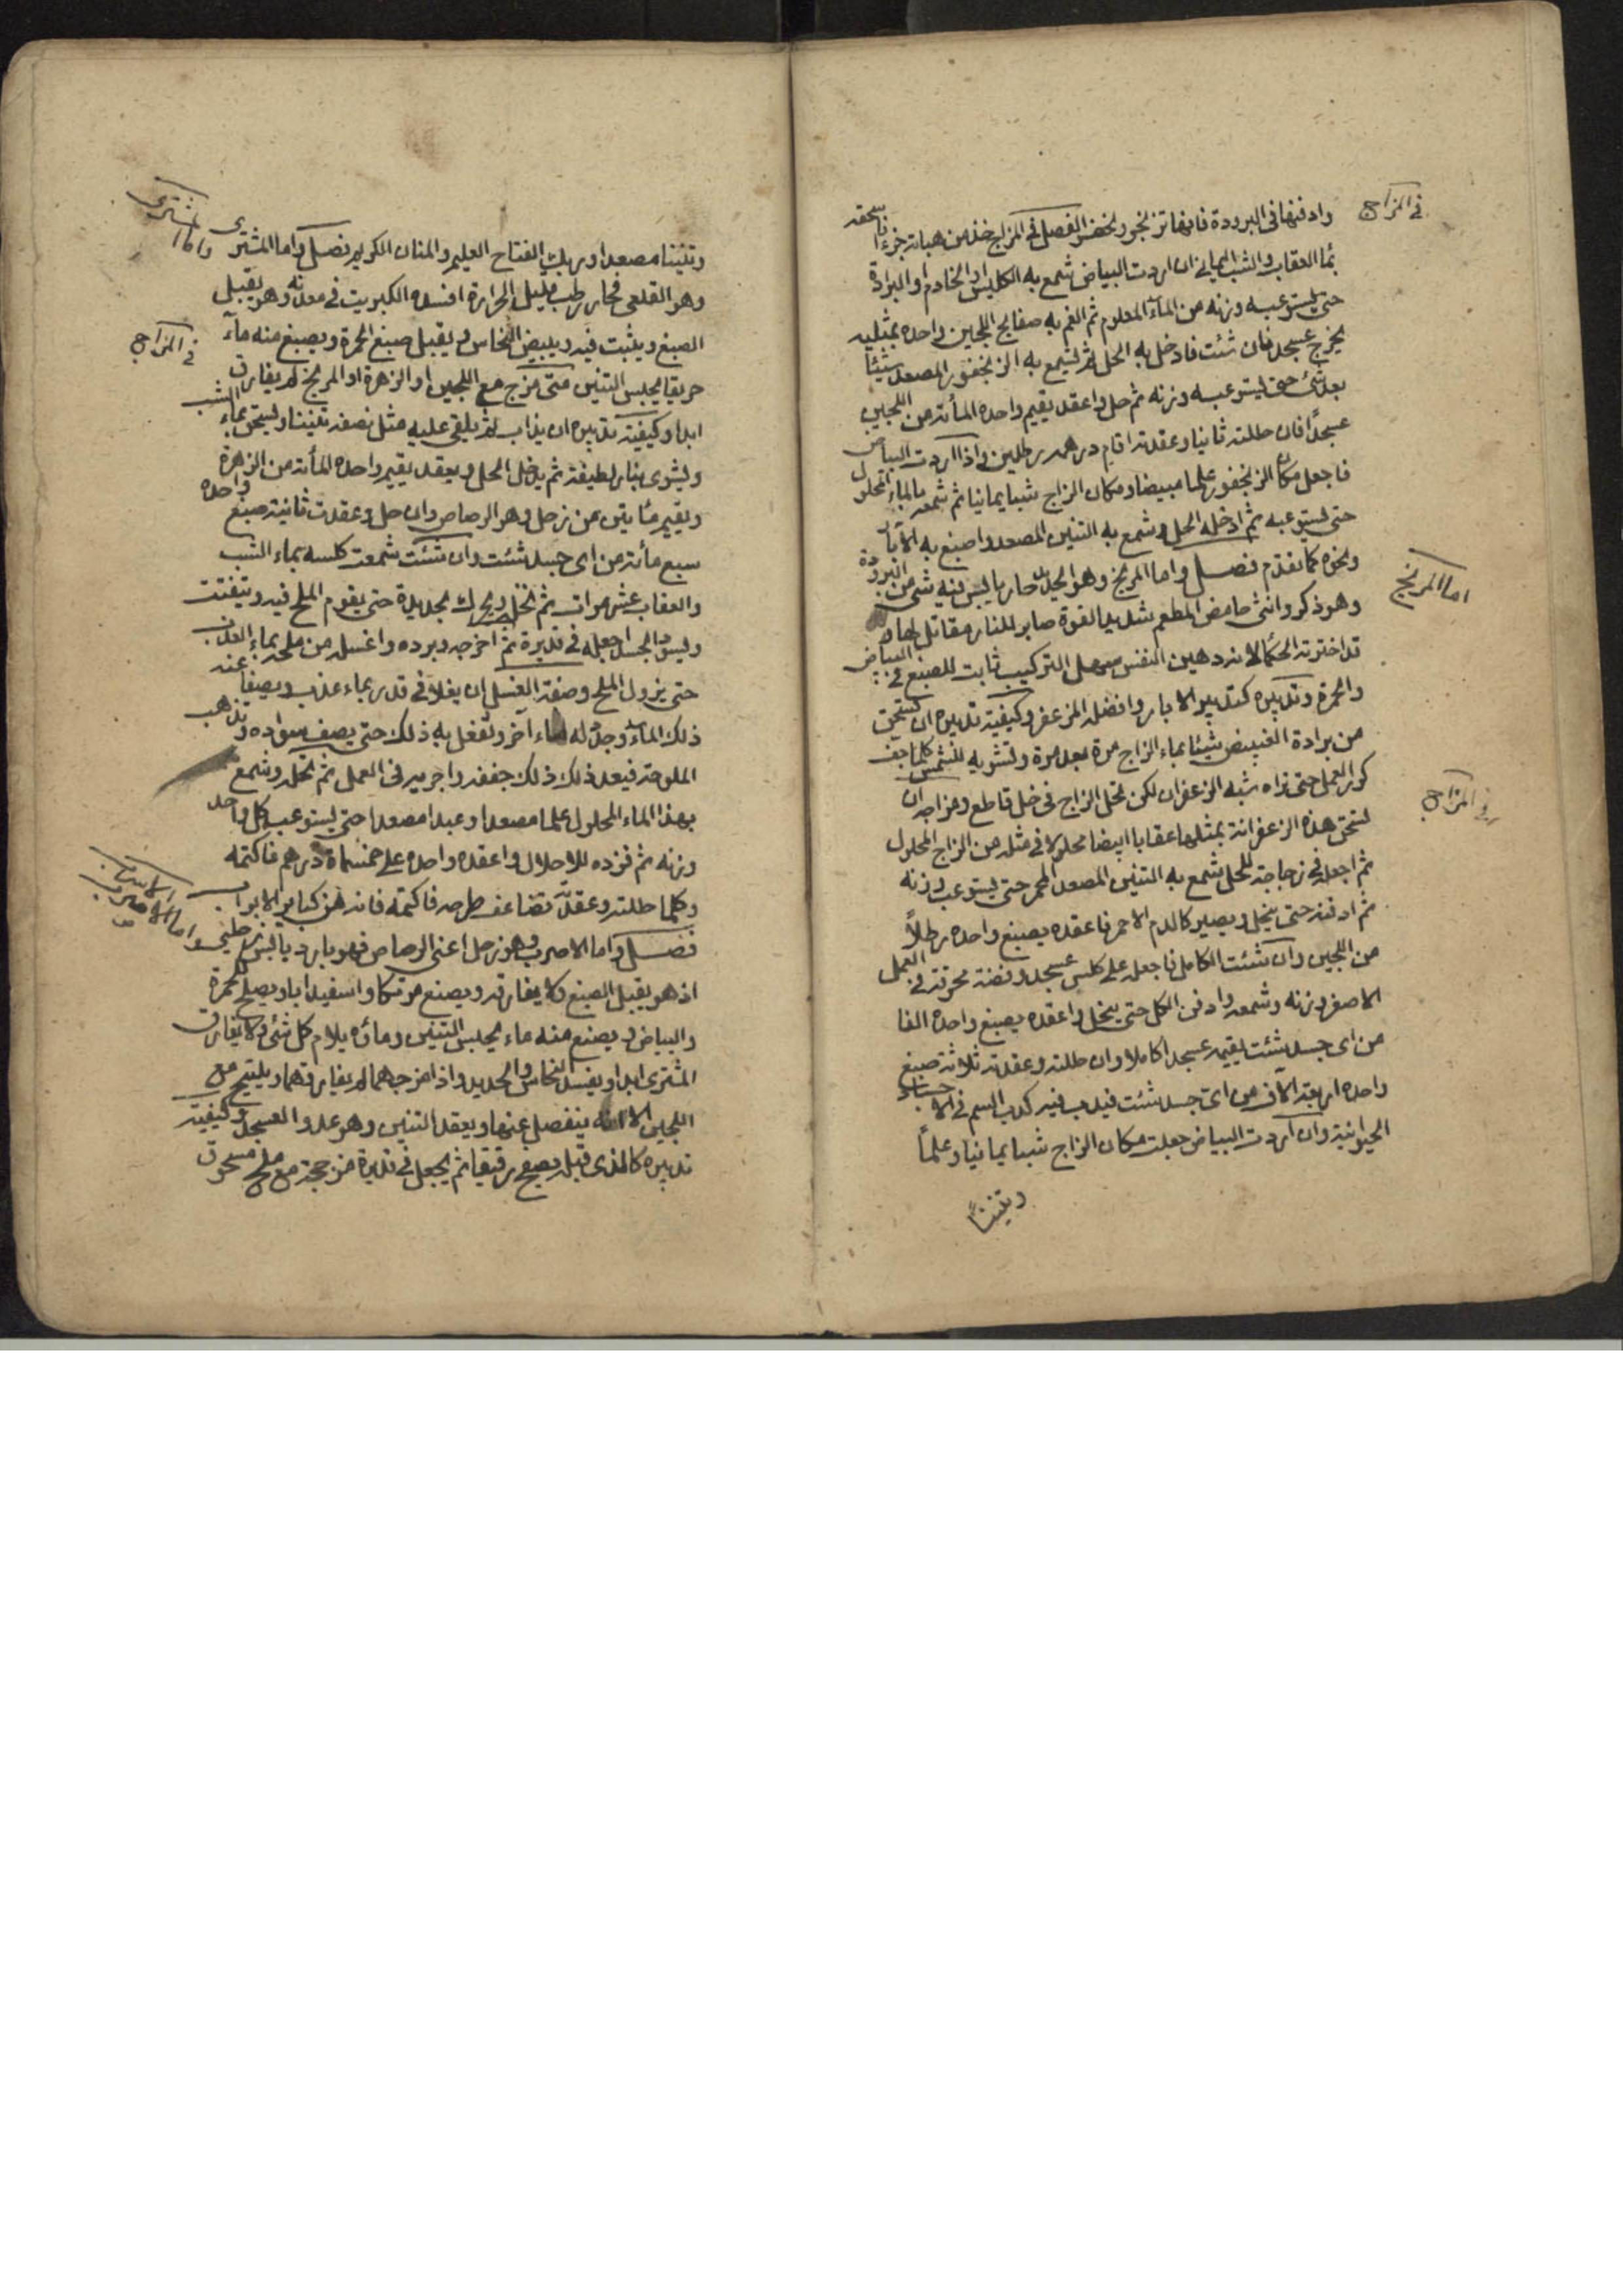 في المزاج
وادفنها في البرودة فانها تزنجر وتخضر الفصل في المزاج خذ من هباته جزءا تسحقه
بماء العقاب والشب اليماني ان اردت البياض شمع به الكليس او الخادم او البرادة
حتى يستوعبه وزنه من الماء المعلوم ثم الغم به صفايح اللجين واحده بمثليه
يخرج عسجد فان شئت فادخل به الحل ثم شمع به الزنجفور المصعد شيئا
بعد شئ حتى يستوعبه وزنه ثم حل واعقد يقيم واحده المأته من اللجين
عسجدا فان حللته ثانيا وعقدته اقام درهمه رطلين واذا اردت البياض
فاجعل مكان الزنجفور علما مبيضا ومكان الزاج شبا يمانيا ثم شمعه بالماء المحلول
حتى يستوعبه ثم ادخله الحل وشمع به التنين المصعد واصبغ به الآبار
ونحوه كما تقدم فصل واما المريخ وهو الحديد حار يابس فيه شئ من البرودة
اما المريخ
وهو ذكر وانثى حامض المطعم شديد القوة صابر للنار مقاتل لها
قد اختزته الحكماء لانه دهين النفس سهل التركيب ثابت للصبغ في البياض
والحمرة وتدبيره كتدبير الابار وافضله المزعفر وكيفية تدبيره ان تسحق
من برادة شيئا بماء الزاج مرة بعد مرة وتشويه للشمس كلما جف
كرر العمل حتى تراه شبه الزعفران لكن تحل الزاج في خل قاطع ومزاجه ان
في المزاج
تسحق هذه الزعفرانة بمثلها عقابا ابيضا محلولا في مثله من الزاج المحلول
ثم اجعله في زجاجة للحل شمع به التنين المصعد المحمر حتى يستوعب وزنه
ثم ادفنه حتى ينحل ويصير كالدم الاحمر فاعقده يصبغ واحده رطلاً
من اللجين وان شئت الكامل فاجعله على كلس عسجد وفضة محرقة في العمل
الاصفر وزنه وشمعه وادفن الكل حتى ينحل واعقده يصبغ واحده الفا
من اى جسد شئت يقيمه عسجدا كاملا وان حللته وعقدته ثلاثة صبغ
واحده اربعة الآف من اى جسد شئت فيدب فيه كدب السم في الاجساد
الحيوانية وان اردت البياض جعلت مكان الزاج شبا يمانيا وعلماً
وتنيناً
وتنينا مصعدا وربك الفتاح العليم والمنان الكريم فصل واما المشترى
واما المشترى
وهو القلعى فحار رطب قليل الحرارة افسده الكبريت في معدنه وهو يقبل
الصبغ ويثبت فيه ويبيض النحاس ويقبل صبغ الحمرة ويصبغ منه مآء
في المزاج
حريفا يحبس التنين متى مزج مع اللجين او الزهرة او المريخ لم يفارق
ابدا وكيفية تدبيره ان يذاب ثم يلقى عليه مثل نصفه تنينا ويسحق بماء الشب
ويشوى بنار لطيفة ثم يدخل الحل ويعقد يقيم واحده المأته من الزهرة
ويقيم مائتين من زحل وهو الرصاص وان حل وعقدت ثانية صبغ واحده
سبع مأته من اى جسد شئت وان شئت شمعت كلسه بماء الشب
والعقاب عشر مرات ثم تنخل ويحرك بحديدة حتى يقوم الملح فيه ويتفتت
وليس الجسد اجعله في قديرة ثم اخرجه وبرده واغسله من ملحه بماء العذب
حتى يزول الملح وصفة الغسل ان يغلا في قدر بماء عذب ويصفا عنه
ذلك الماء وجدد له ماء آخر وتفعل به ذلك حتى يصف سواده وتذهب
الملوحة فيعد ذلك ذلك جففه واجريه في العمل ثم تحله وشمع
بهذا الماء المحلول علما مصعدا وعبدا مصعدا حتى يستوعب كل واحد
وزنه ثم فزده للاحلال واعقده واحده على خمسماة درهم فاكتمه
وكلما حللته وعقدته تضاعف طرحه فاكتمه فانه من كباير الابواب
فصل واما الاصرب وهو زحل اعني الرصاص فهو بارد يابس
اذ هو يقبل الصبغ ولا يفارقه ويصنع مرتكا واسفيداجا ويصلح للحمرة
والبياض ويصنع منه ماء يحبس التنين وماؤه يلازم كل شئ ولا يفارق
المشترى ابدا ويفسد النحاس والحديد واذا مزجهما لم يفارقهما ويلتيم مع
اللجين الا انه ينفصل عنها ويعقد التنين وهو عدو العسجد وكيفية
تدبيره كالذى قبله يصفح رقيقا ثم يجعل في قديرة مزججة مع ملح مسحوق